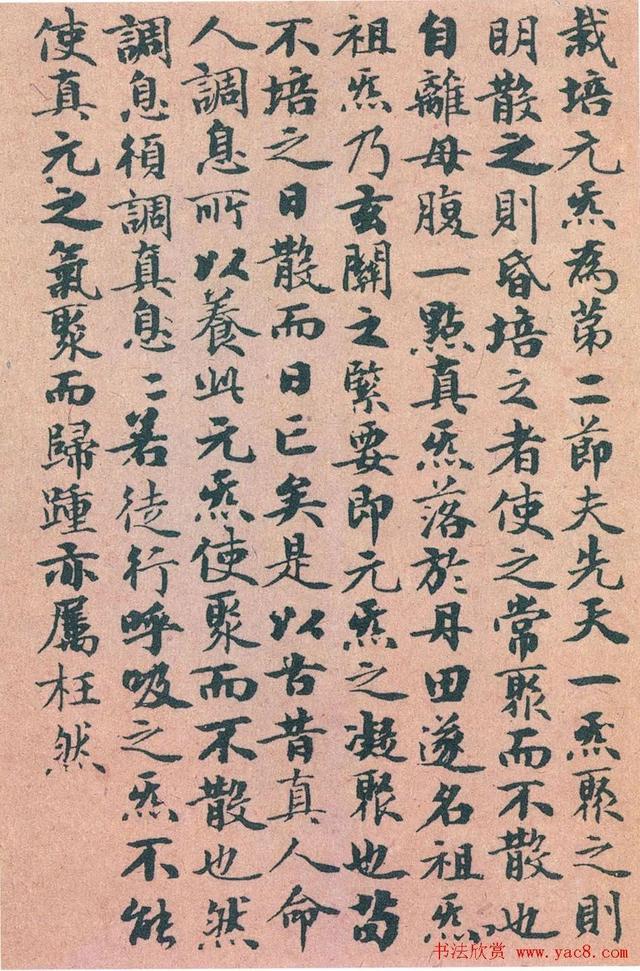 栽培元炁為第二節夫先天一炁聚之則
明散之則昏培之者使之常聚而不散也
自離母腹一點真炁落於丹田遂名祖炁
祖炁乃玄關之緊要即元炁之凝聚也苟
不培之日散而日亡矣是以古昔真人命
人調息所以養此元炁使聚而不散也然
調息須調真息〻若徒行呼吸之炁不能
使真元之氣聚而歸踵亦屬枉然
书法欣赏 www.yac8.com